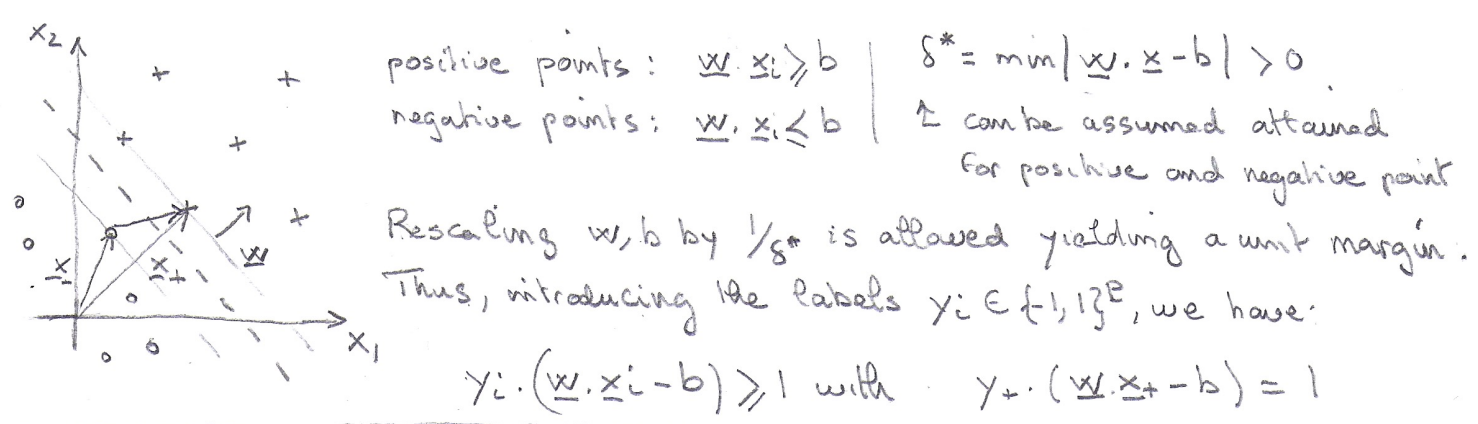 x₂
positive points: w. xᵢ ⩾ b | δ* = min| w. x - b | > 0
negative points: w. xᵢ ⩽ b | ↑ can be assumed attained
for positive and negative point
Rescaling w, b by 1/δ* is allowed yielding a unit margin.
x₋ x₊ w
Thus, introducing the labels yᵢ ∈ {-1, 1}ᴾ, we have:
x₁
yᵢ.(w.xᵢ - b) ⩾ 1 with y₊.(w.x₊ - b) = 1